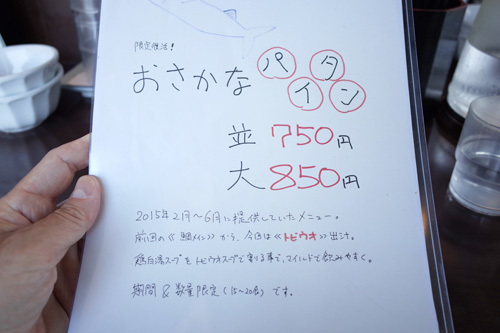 限定復活!
おさかな パタ
イン
並 750円
大 850円
2015年2月〜6月に提供していたメニュー。
前回の《鯛メイン》から、今回は《トビウオ》出汁。
鶏白湯スープをトビウオスープと割る事で、マイルドで飲みやすく。
期間 & 数量限定(15〜20食)です。